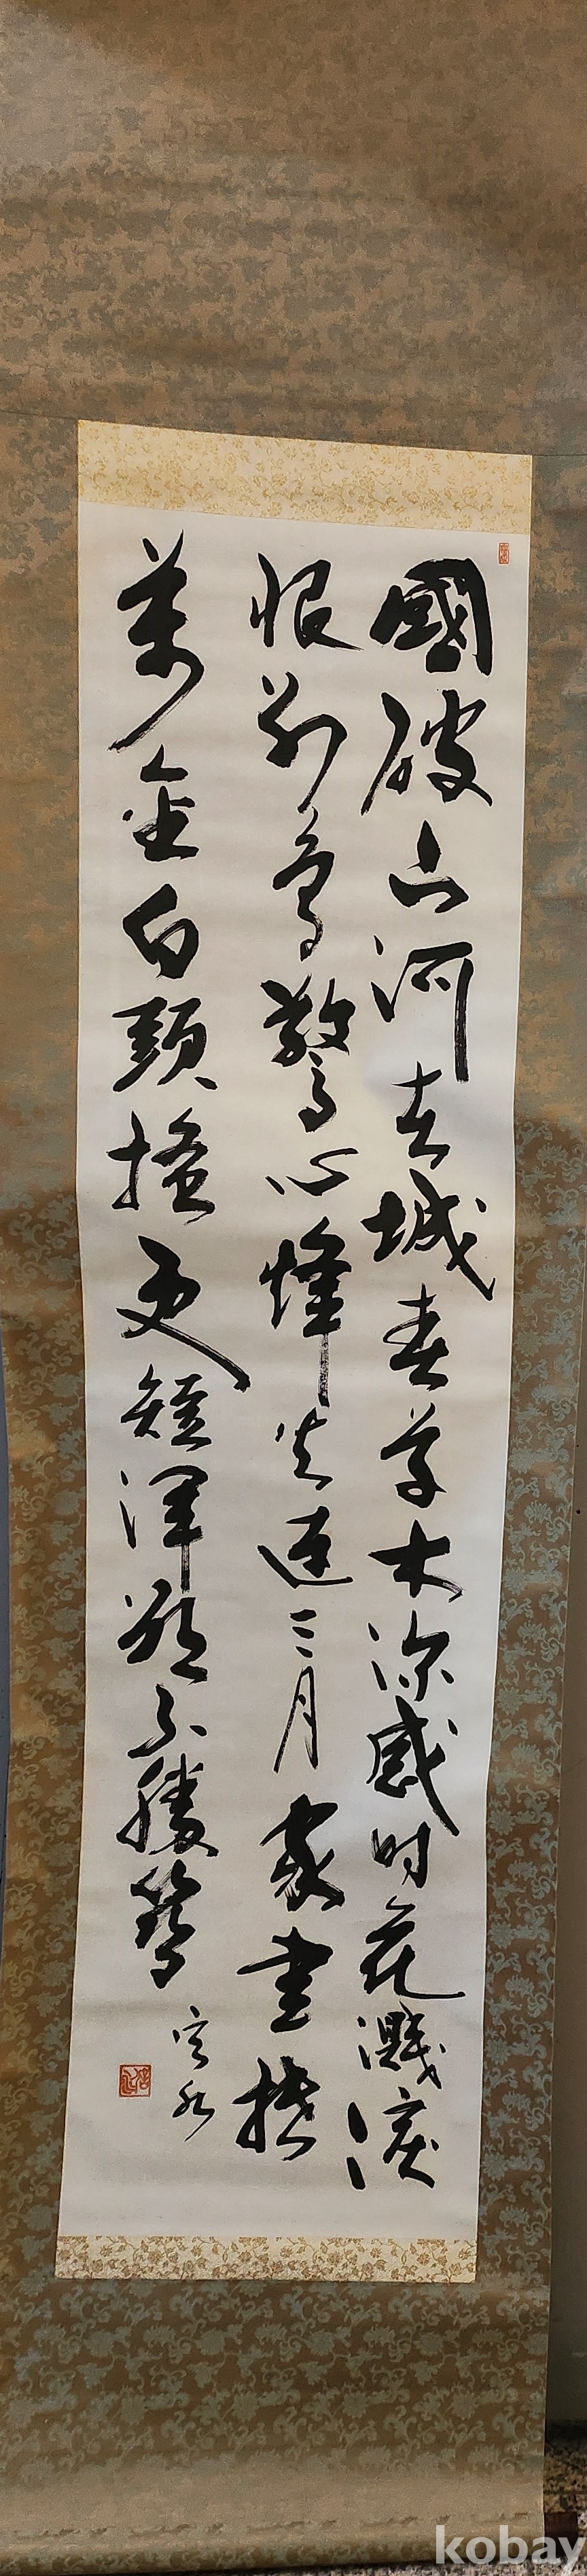 國破山河在城春草木深感时花濺淚
恨別鳥驚心烽火連三月家書抵
萬金白頭搔更短渾欲不勝簪
kobay